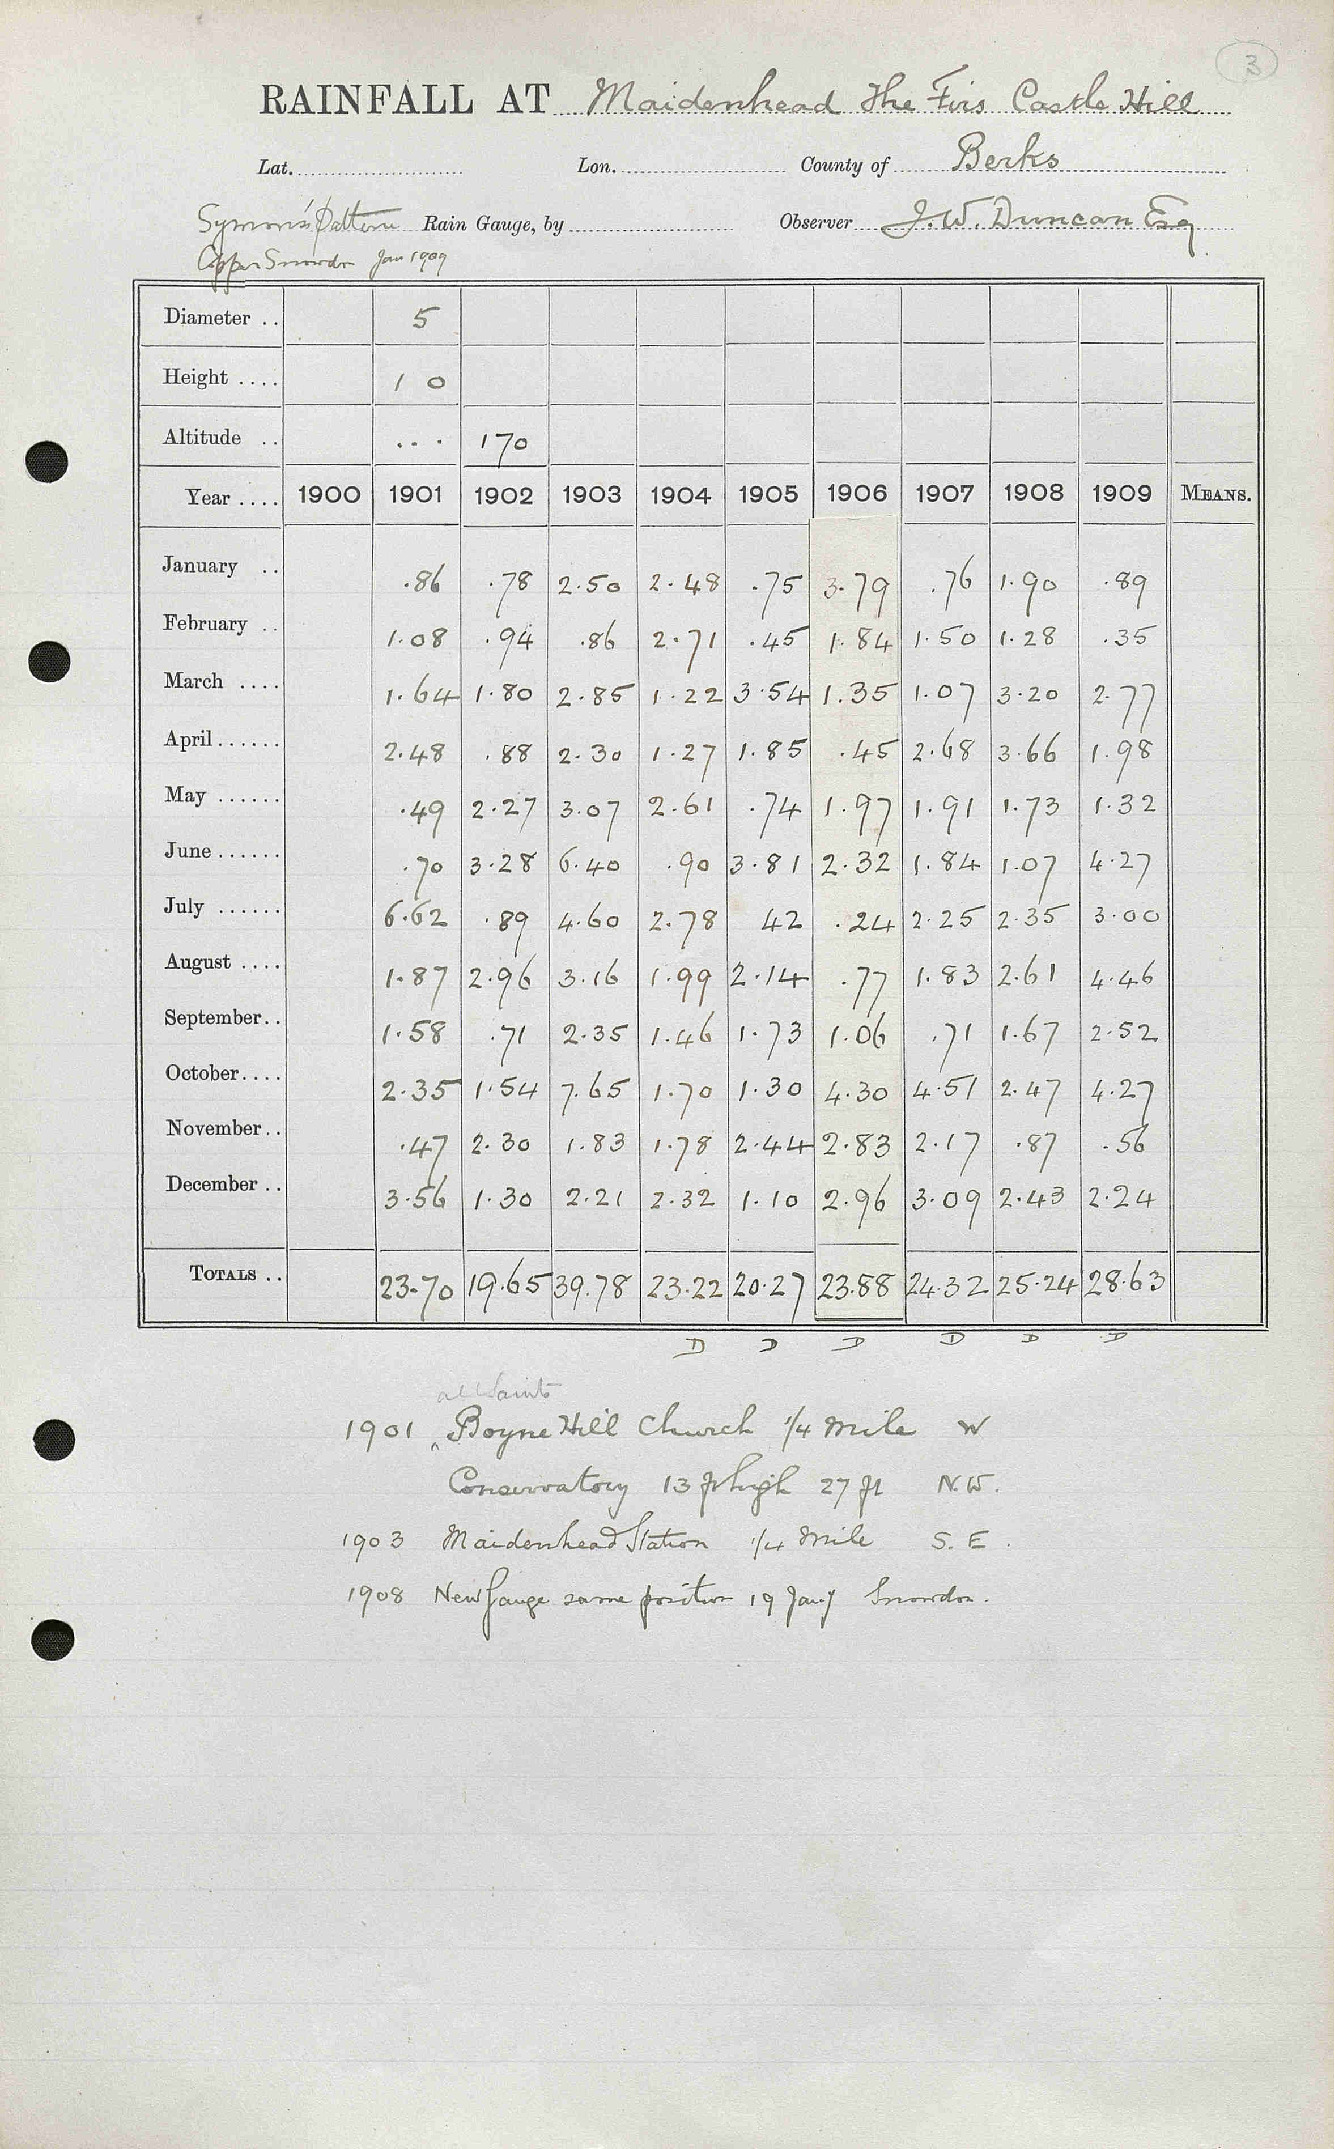 3
RAINFALL AT Maidenhead The Firs Castle Hill
Lat. Lon. County of Berks
Symons's Pattern Rain Gauge, by Observer J. W. Duncan Esq
Copper Snowdon Jan 1909
Diameter .. 5
Height .... 1 0
Altitude .. ... 170
Year .... 1900 1901 1902 1903 1904 1905 1906 1907 1908 1909 MEANS.
January .. .86 .78 2.50 2.48 .75 3.79 .76 1.90 .89
February .. 1.08 .94 .86 2.71 .45 1.84 1.50 1.28 .35
March .... 1.64 1.80 2.85 1.22 3.54 1.35 1.07 3.20 2.77
April ...... 2.48 .88 2.30 1.27 1.85 .45 2.68 3.66 1.98
May ...... .49 2.27 3.07 2.61 .74 1.97 1.91 1.73 1.32
June ...... .70 3.28 6.40 .90 3.81 2.32 1.84 1.07 4.27
July ...... 6.62 .89 4.60 2.78 42 .24 2.25 2.35 3.00
August .... 1.87 2.96 3.16 1.99 2.14 .77 1.83 2.61 4.46
September.. 1.58 .71 2.35 1.46 1.73 1.06 .71 1.67 2.52
October.... 2.35 1.54 7.65 1.70 1.30 4.30 4.51 2.47 4.27
November.. .47 2.30 1.83 1.78 2.44 2.83 2.17 .87 .56
December .. 3.56 1.30 2.21 2.32 1.10 2.96 3.09 2.43 2.24
TOTALS .. 23.70 19.65 39.78 23.22 20.27 23.88 24.32 25.24 28.63
D D D D D D
all Saints
1901 ^ Boyne Hill Church 1/4 mile W
Conservatory 13 ft high 27 ft N.W.
1903 Maidenhead Station 1/4 mile S. E.
1908 New Gauge same position 19 Jany Snowdon.